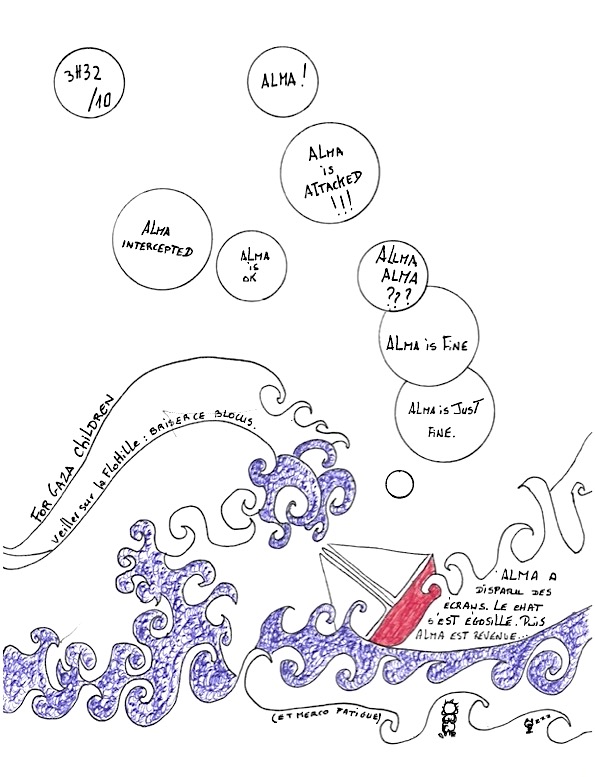 3H32
/10
ALMA !
ALMA
is
ATTACKED
!!!
ALMA
INTERCEPTED
ALMA
is
OK
ALLMA
ALMA
???
ALMA is FINE
ALMA is JUST
FINE.
FOR GAZA CHILDREN
veiller sur la Flottille : BRISER CE BLOCUS.
ALMA A
DISPARU DES
ÉCRANS. LE CHAT
S'EST ÉGOSILLÉ. PUIS
ALMA EST REVENUE...
(ET MERCO FATIGUE)
zzz